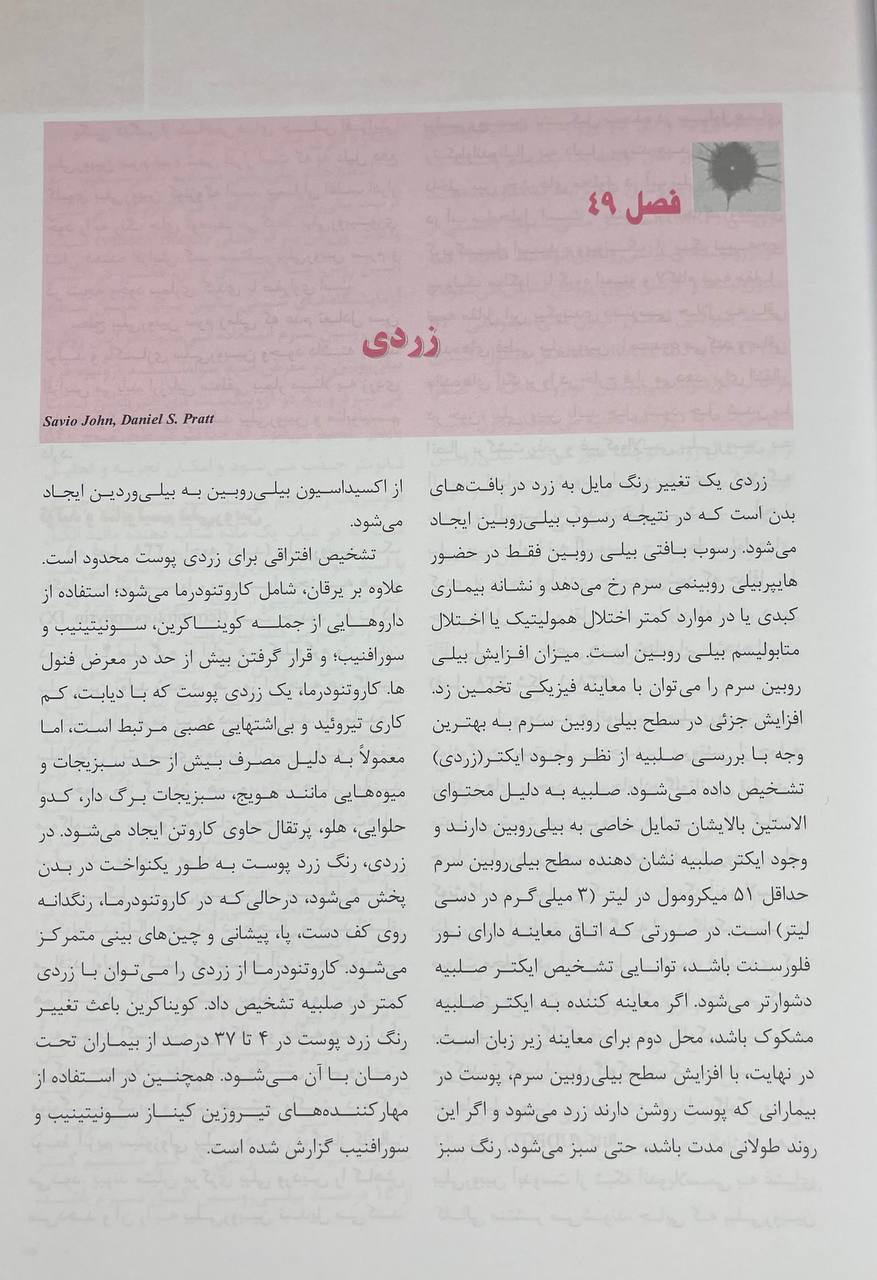 فصل ۴۹
زردی
Savio John, Daniel S. Pratt
زردی یک تغییر رنگ مایل به زرد در بافت‌های
بدن است که در نتیجه رسوب بیلی‌روبین ایجاد
می‌شود. رسوب بافتی بیلی روبین فقط در حضور
هایپربیلی روبینمی سرم رخ می‌دهد و نشانه بیماری
کبدی یا در موارد کمتر اختلال همولیتیک یا اختلال
متابولیسم بیلی روبین است. میزان افزایش بیلی
روبین سرم را می‌توان با معاینه فیزیکی تخمین زد.
افزایش جزئی در سطح بیلی روبین سرم به بهترین
وجه با بررسی صلبیه از نظر وجود ایکتر(زردی)
تشخیص داده می‌شود. صلبیه به دلیل محتوای
الاستین بالایشان تمایل خاصی به بیلی‌روبین دارند و
وجود ایکتر صلبیه نشان دهنده سطح بیلی‌روبین سرم
حداقل ۵۱ میکرومول در لیتر (۳ میلی‌گرم در دسی
لیتر) است. در صورتی که اتاق معاینه دارای نور
فلورسنت باشد، توانایی تشخیص ایکتر صلبیه
دشوارتر می‌شود. اگر معاینه کننده به ایکتر صلبیه
مشکوک باشد، محل دوم برای معاینه زیر زبان است.
در نهایت، با افزایش سطح بیلی‌روبین سرم، پوست در
بیمارانی که پوست روشن دارند زرد می‌شود و اگر این
روند طولانی مدت باشد، حتی سبز می‌شود. رنگ سبز
از اکسیداسیون بیلی‌روبین به بیلی‌وردین ایجاد
می‌شود.
تشخیص افتراقی برای زردی پوست محدود است.
علاوه بر یرقان، شامل کاروتنودرما می‌شود؛ استفاده از
داروهایی از جمله کویناکرین، سونیتینیب و
سورافنیب؛ و قرار گرفتن بیش از حد در معرض فنول
ها. کاروتنودرما، یک زردی پوست که با دیابت، کم
کاری تیروئید و بی‌اشتهایی عصبی مرتبط است، اما
معمولاً به دلیل مصرف بیش از حد سبزیجات و
میوه‌هایی مانند هویج، سبزیجات برگ دار، کدو
حلوایی، هلو، پرتقال حاوی کاروتن ایجاد می‌شود. در
زردی، رنگ زرد پوست به طور یکنواخت در بدن
پخش می‌شود، درحالی‌که در کاروتنودرما، رنگدانه
روی کف دست، پا، پیشانی و چین‌های بینی متمرکز
می‌شود. کاروتنودرما از زردی را می‌توان با زردی
کمتر در صلبیه تشخیص داد. کویناکرین باعث تغییر
رنگ زرد پوست در ۴ تا ۳۷ درصد از بیماران تحت
درمان با آن می‌شود. همچنین در استفاده از
مهارکننده‌های تیروزین کیناز سونیتینیب و
سورافنیب گزارش شده است.